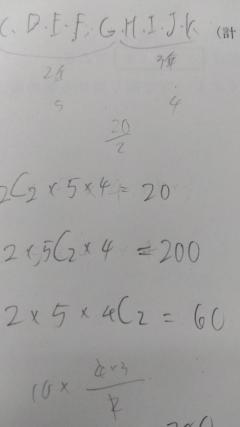 C. D. E. F. G. H. I. J. K. (計
2種 3種
5 4
20/2
2C2 × 5 × 4 = 20
2 × 5C2 × 4 = 200
2 × 5 × 4C2 = 60
10 × (4×3)/2